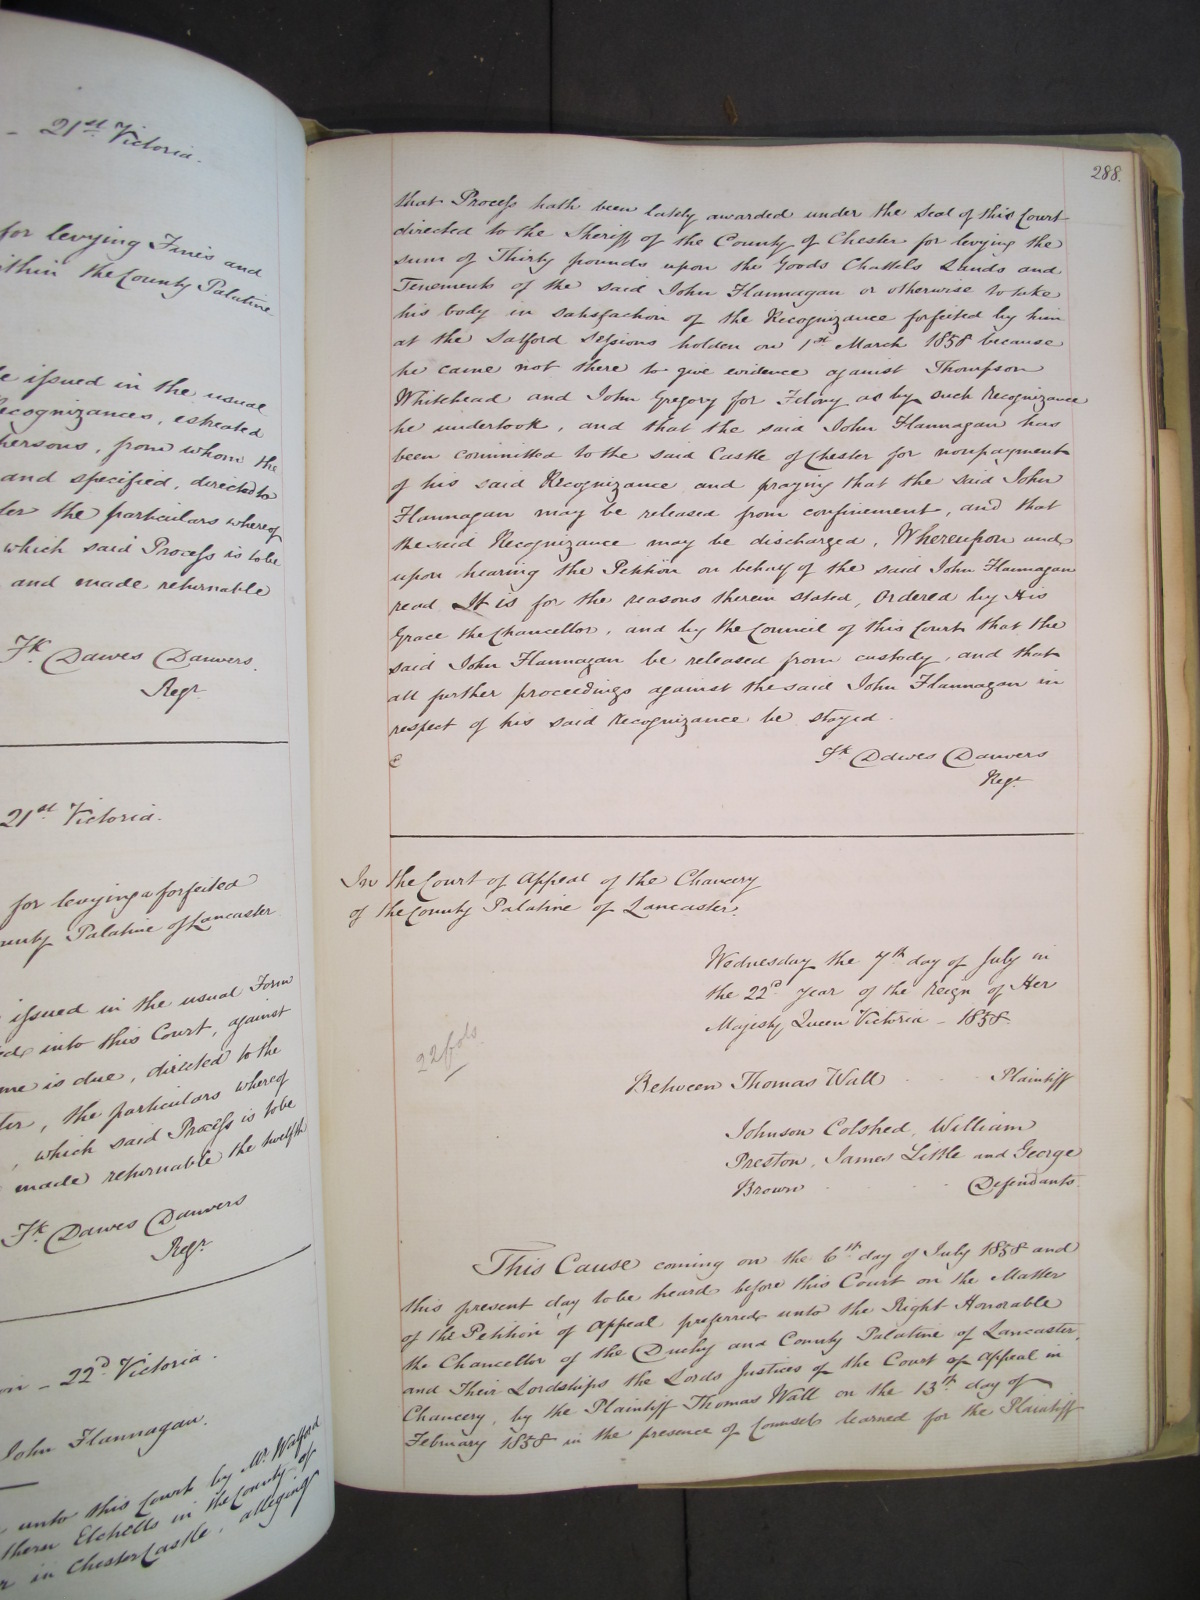 - 21st Victoria.
for levying Fines and
within the County Palatine
be issued in the usual
Recognizances, estreated
persons, from whom the
and specified, directed to
the particulars whereof
which said Process is to be
and made returnable
Fk. Dawes Danvers.
Regr.
21st Victoria.
for levying a forfeited
County Palatine of Lancaster
issued in the usual Form
into this Court, against
same is due, directed to the
, the particulars whereof
, which said Process is to be
made returnable the twelfth
Fk. Dawes Danvers
Regr.
- 22d. Victoria.
John Flannagan.
unto this Court by Mr. Walford
Etchells in the County of
in Chester Castle, alleging
288.
that Process hath been lately awarded under the Seal of this Court
directed to the Sheriff of the County of Chester for levying the
sum of Thirty pounds upon the Goods Chattels Lands and
Tenements of the said John Flannagan or otherwise to take
his body in satisfaction of the Recognizance forfeited by him
at the Salford Sessions holden on 1st March 1858 because
he came not there to give evidence against Thompson
Whitehead and John Gregory for Felony as by such Recognizance
he undertook, and that the said John Flannagan has
been committed to the said Castle of Chester for nonpayment
of his said Recognizance and praying that the said John
Flannagan may be released from confinement, and that
the said Recognizance may be discharged, Whereupon and
upon hearing the Petition on behalf of the said John Flannagan
read It is for the reasons therein stated, Ordered by His
Grace the Chancellor, and by the Council of this Court that the
said John Flannagan be released from custody, and that
all further proceedings against the said John Flannagan in
respect of his said Recognizance be stayed.
Fk Dawes Danvers
Regr.
In the Court of Appeal of the Chancery
of the County Palatine of Lancaster.
Wednesday the 7th day of July in
the 22d. year of the Reign of Her
Majesty Queen Victoria - 1858.
22 fols.
Between Thomas Wall - - Plaintiff
Johnson Colshed, William
Preston, James Little and George
Brown - - - Defendants.
This Cause coming on the 6th day of July 1858 and
this present day to be heard before this Court on the Matter
of the Petition of Appeal preferred unto the Right Honorable
the Chancellor of the Duchy and County Palatine of Lancaster,
and Their Lordships the Lords Justices of the Court of Appeal in
Chancery, by the Plaintiff Thomas Wall on the 13th day of
February 1858 in the presence of Counsel learned for the Plaintiff